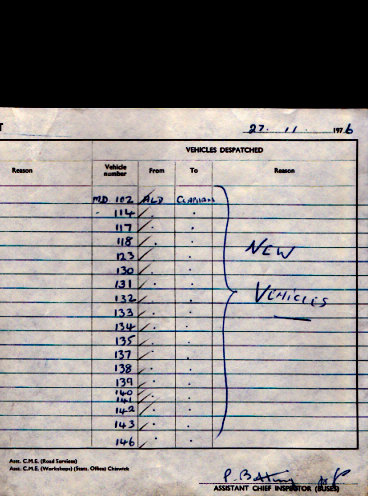 T 27. 11 1976
VEHICLES DESPATCHED
Reason Vehicle number From To Reason
MD 102 ALD CLAPHAM
" 114
117
118
123
130
131
132
133
134
135
137
138
139
140
141
142
143
146
NEW
VEHICLES
Asst. C.M.E. (Road Services)
Asst. C.M.E. (Workshops) (Stats. Office) Chiswick
ASSISTANT CHIEF INSPECTOR (BUSES)